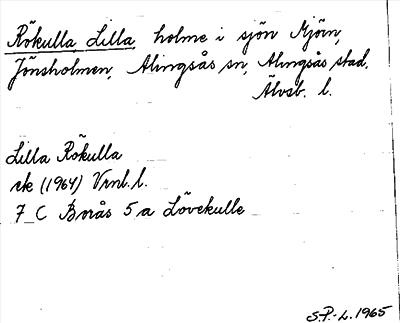 Rökulla, Lilla, holme i sjön Mjörn,
Jönsholmen, Alingsås sn, Alingsås stad.
Älvsb. l.
Lilla Rökulla
ek (1964) Vrnl. l.
7 C Borås 5 a Lövekulle
S.P.-L. 1965